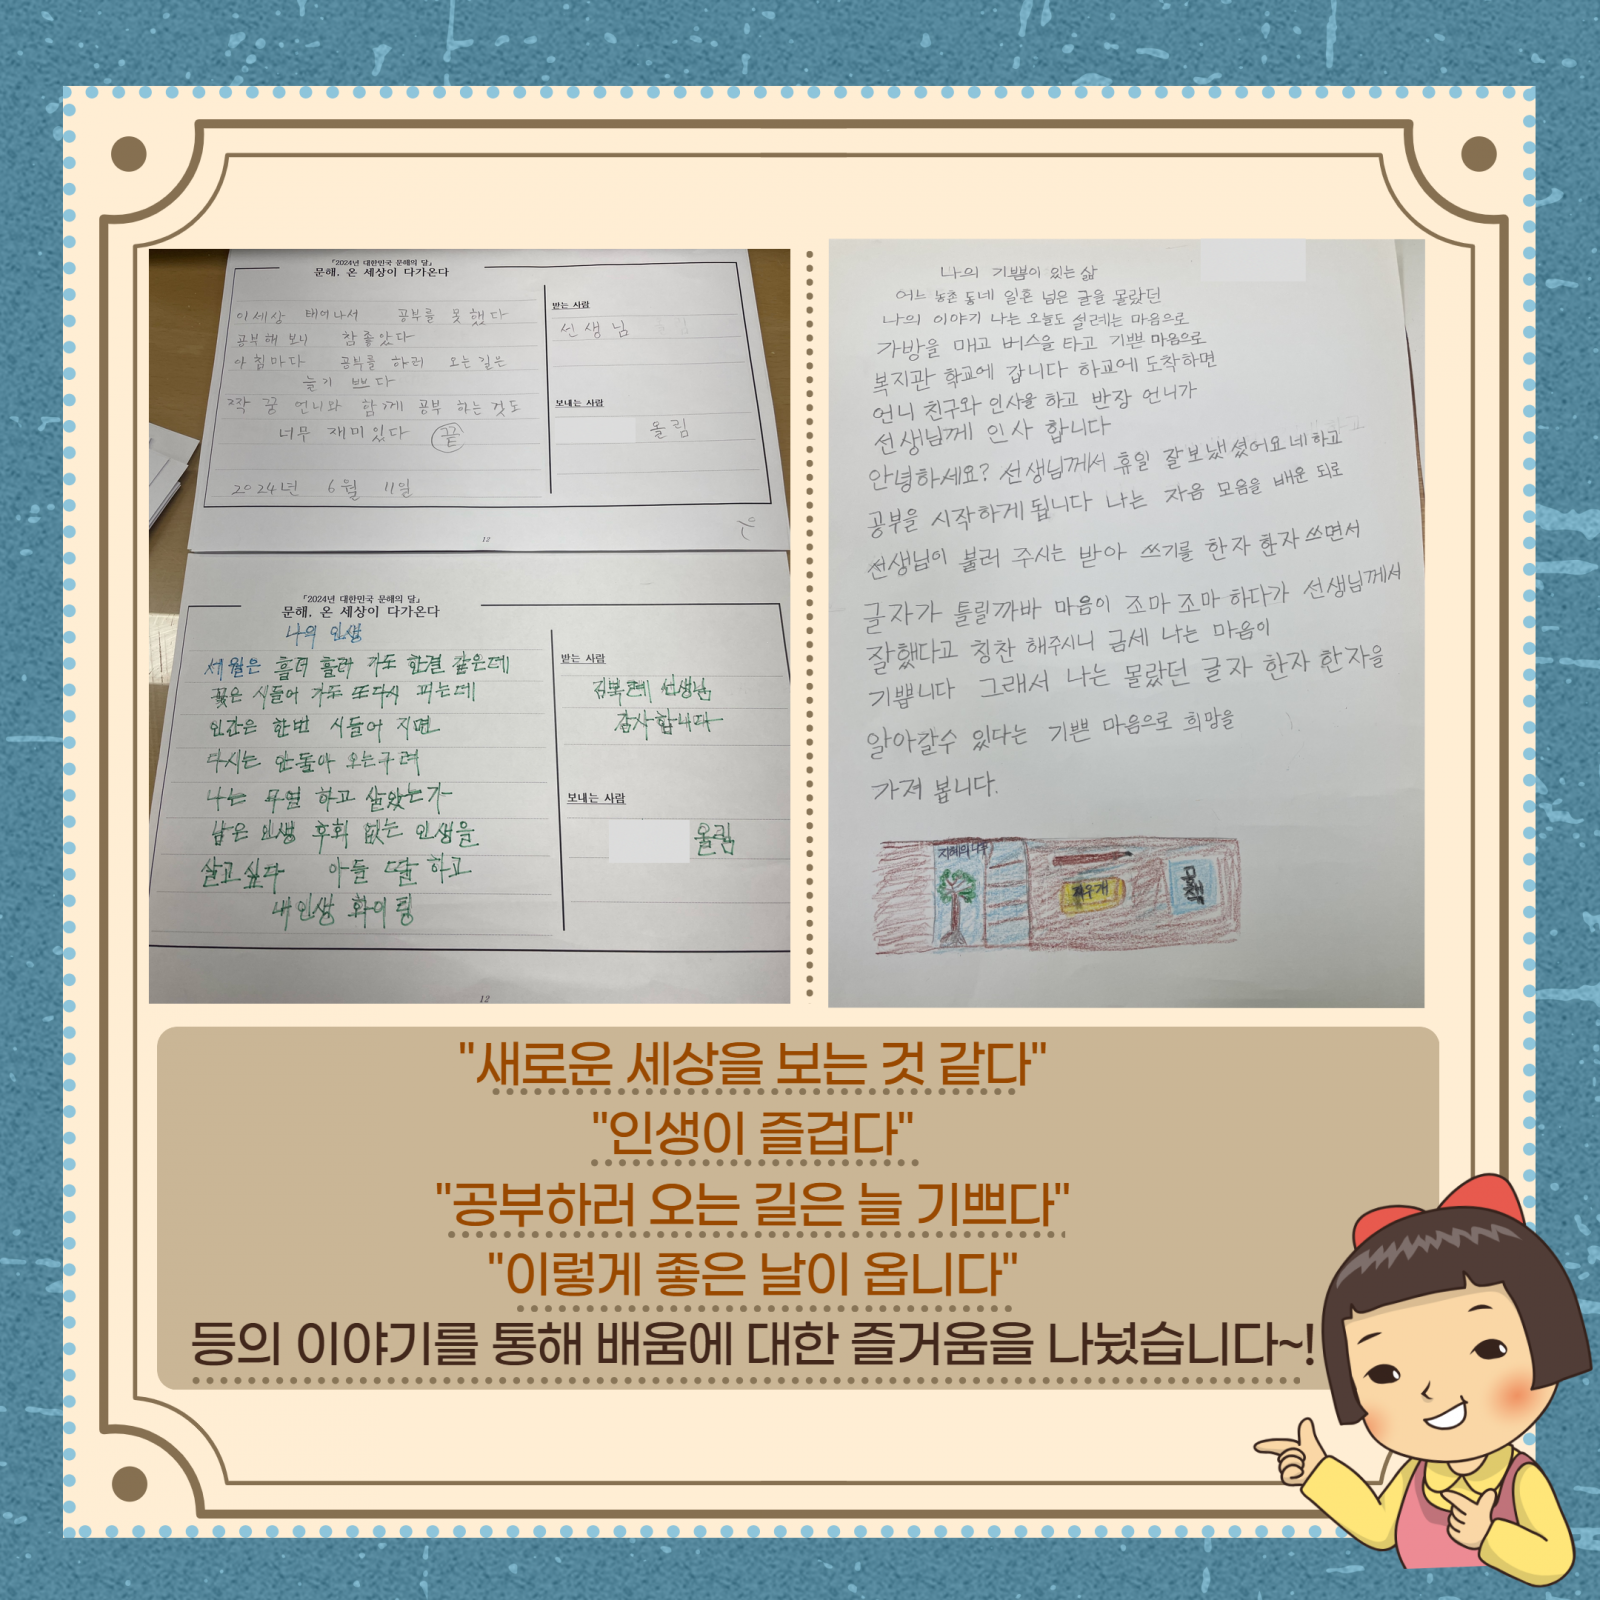 「2024년 대한민국 문해의 달」
문해, 온 세상이 다가온다
이세상 태어나서 공부를 못했다
공부해 보니 참좋았다
아침마다 공부를 하러 오는길은
늘기쁘다
2작꿍 언니와 함께 공부 하는 것도
너무 재미있다 끝
2024년 6월 11일
받는 사람
선생님
보내는 사람
올림
12
「2024년 대한민국 문해의 달」
문해, 온 세상이 다가온다
나의 인생
세월은 흘러 흘러 가도 한결 같은데
꽃은 시들어 가도 또다시 피는데
인간은 한번 시들어 지면
다시는 안돌아 오는구려
나는 무얼 하고 살았는가
남은 인생 후회 없는 인생을
살고싶다 아들 딸 하고
내인생 화이팅
받는 사람
선생님
감사합니다
보내는 사람
올림
12
나의 기쁨이 있는 삶
어느 농촌 동네 일흔 넘은 글을 몰랐던
나의 이야기 나는 오늘도 설레는 마음으로
가방을 매고 버스을 타고 기쁜 마음으로
복지관 학교에 갑니다 하교에 도착하면
언니 친구와 인사을 하고 반장 언니가
선생님께 인사 합니다
안녕하세요? 선생님께서 휴일 잘보냈셨어요네하고
공부을 시작하게됩니다 나는 자음 모음을 배운 되로
선생님이 불러 주시는 받아 쓰기를 한자 한자 쓰면서
글자가 틀릴까바 마음이 조마조마 하다가 선생님께서
잘했다고 칭찬 해주시니 금세 나는 마음이
기쁩니다 그래서 나는 몰랐던 글자 한자 한자을
알아갈수 있다는 기쁜 마음으로 희망을
가져 봅니다.
지혜의 나무
지우개
공책
"새로운 세상을 보는 것 같다"
"인생이 즐겁다"
"공부하러 오는 길은 늘 기쁘다"
"이렇게 좋은 날이 옵니다"
등의 이야기를 통해 배움에 대한 즐거움을 나눴습니다~!